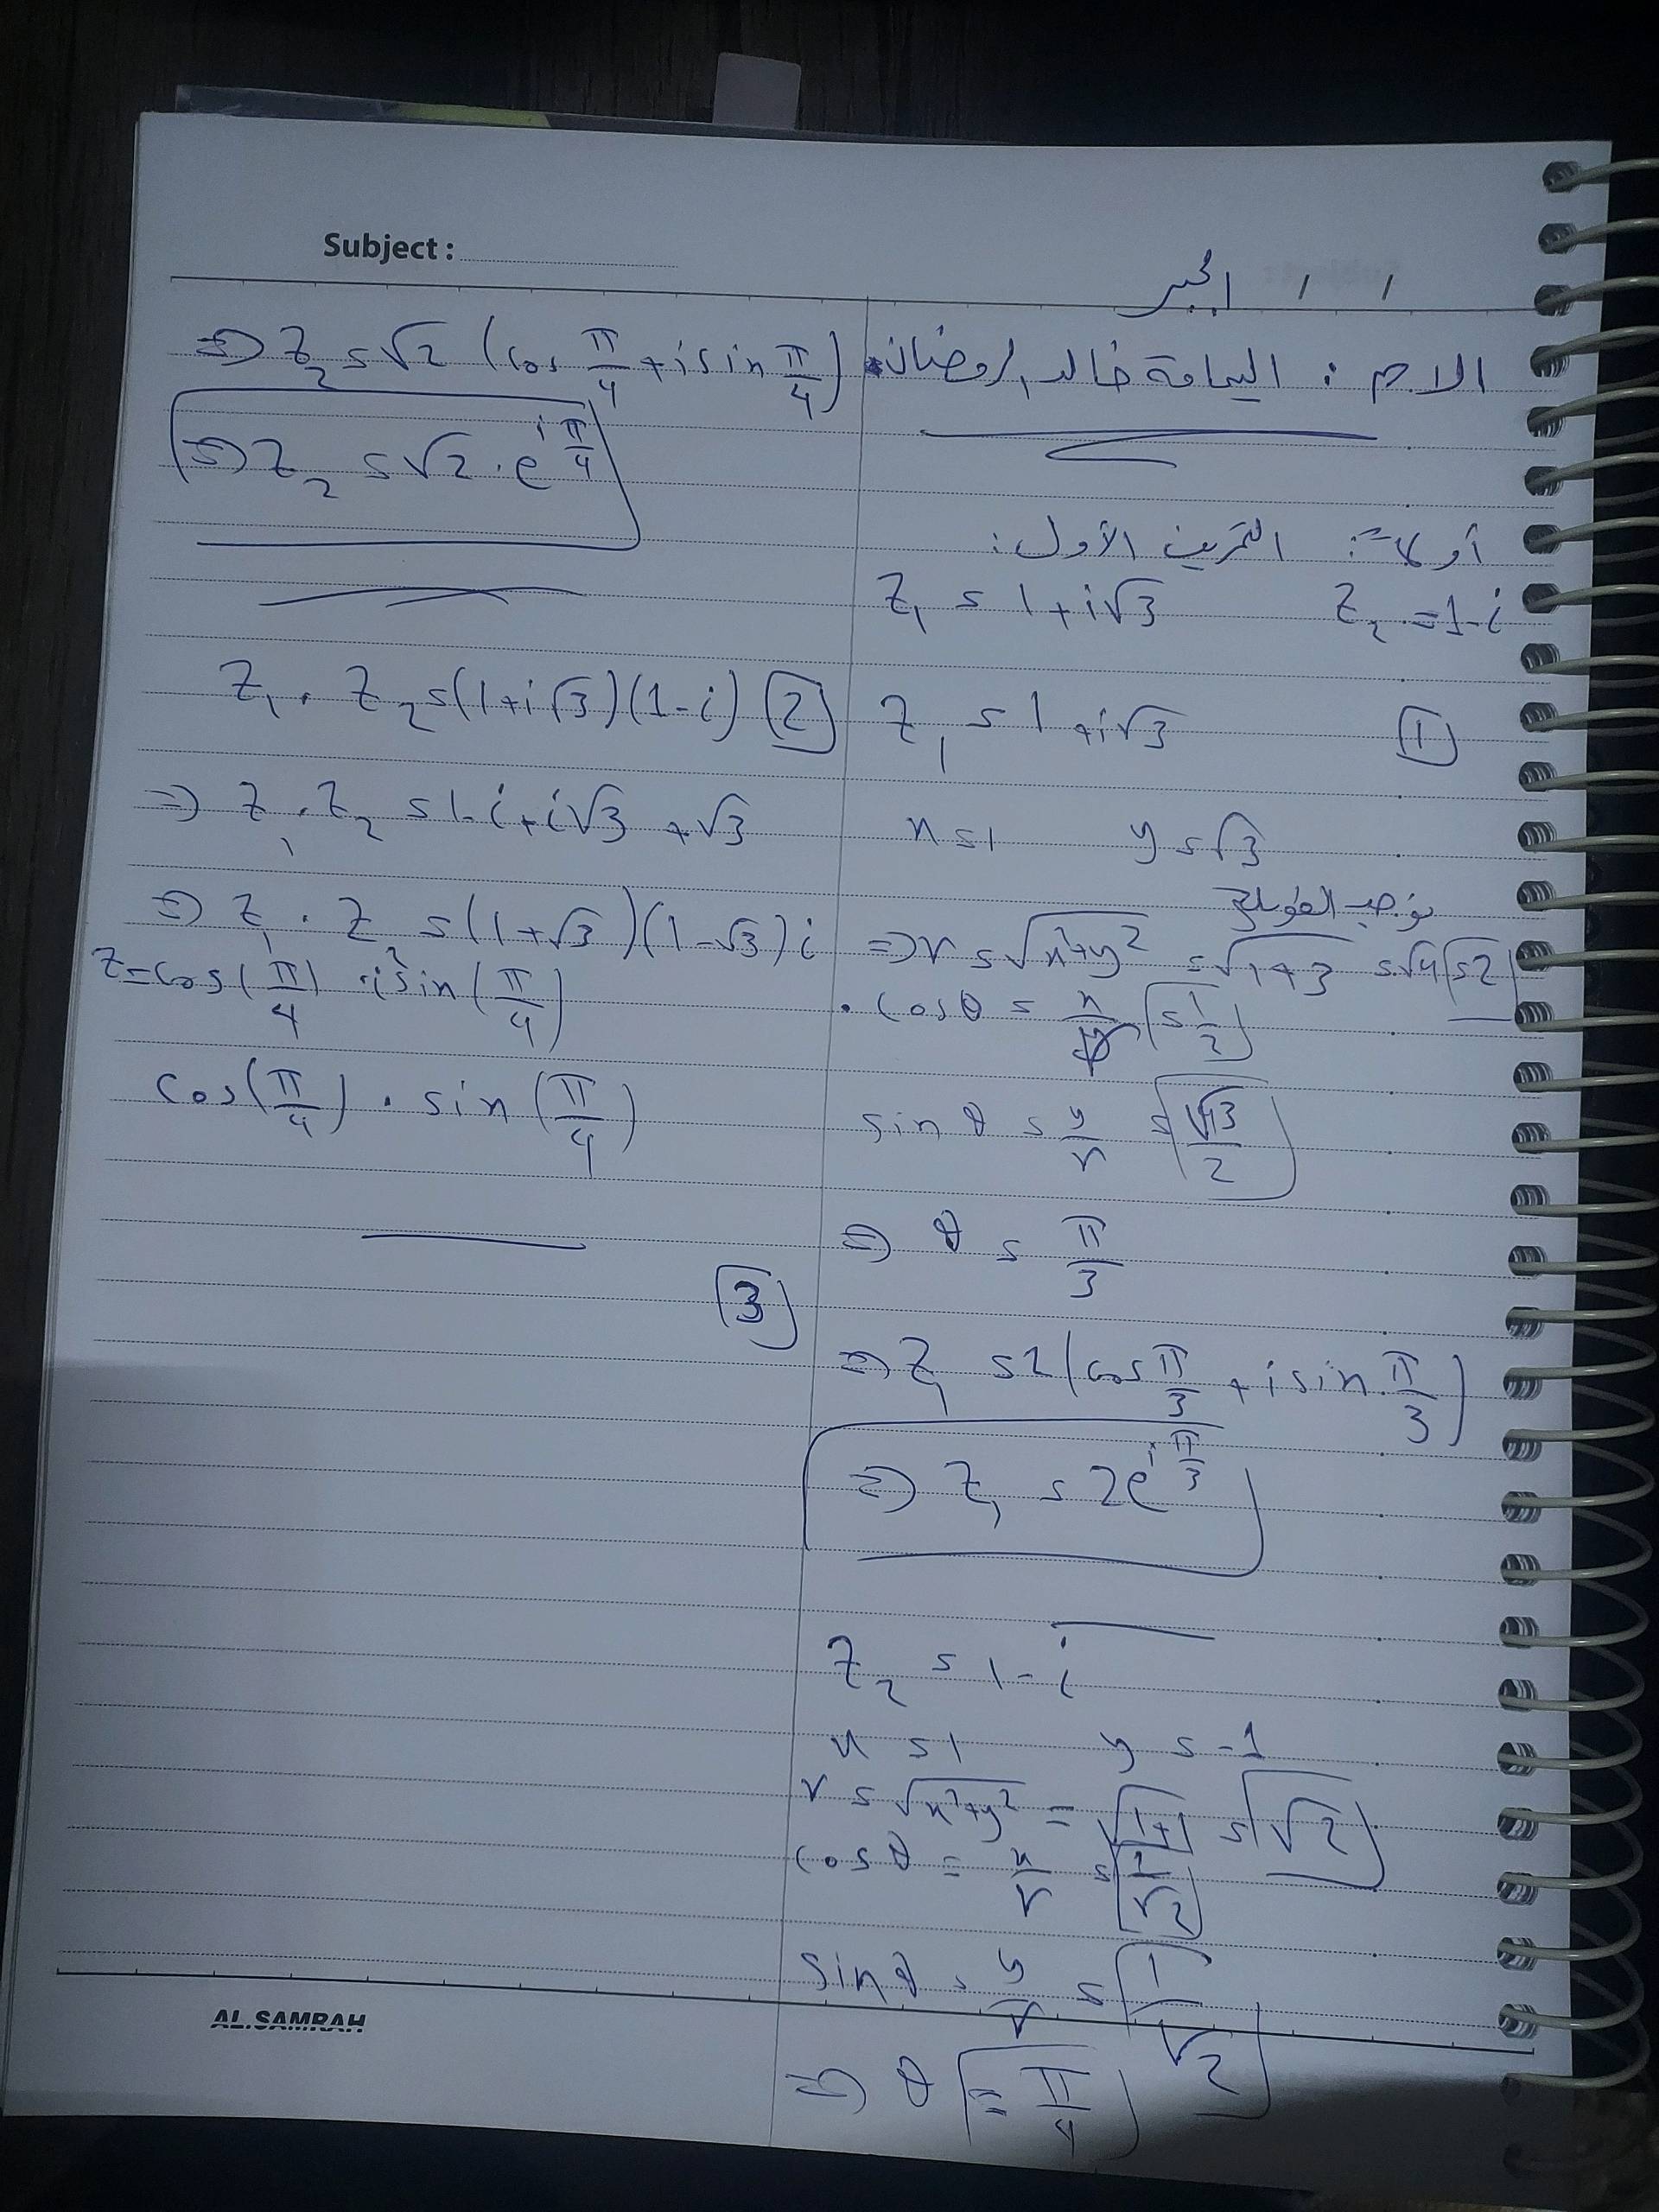 Subject :
/ / الجبر
الاسم : اليمامة خالد رمضان
أولاً : التمرين الأول :
z₁ = 1 + i√3 z₂ = 1 - i
1 z₁ = 1 + i√3
x = 1 y = √3
نوجد الطويلة
⇒ r = √x²+y² = √1+3 = √4 = 2
. cos θ = x/r = 1/2
sin θ = y/r = √3/2
⇒ θ = π/3
⇒ z₁ = 2(cos π/3 + i sin π/3)
⇒ z₁ = 2e^(i π/3)
z₂ = 1 - i
x = 1 y = -1
r = √x²+y² = √1+1 = √2
cos θ = x/r = 1/√2
sin θ = y/r = 1/√2
⇒ θ = π/4
⇒ z₂ = √2 (cos π/4 + i sin π/4)
⇒ z₂ = √2 . e^(i π/4)
z₁ . z₂ = (1+i√3)(1-i) 2
⇒ z₁ . z₂ = 1 - i + i√3 + √3
⇒ z₁ . z₂ = (1+√3)(1-√3)i
z = cos(π/4) . i sin(π/4)
cos(π/4) . sin(π/4)
3
AL.SAMRAH